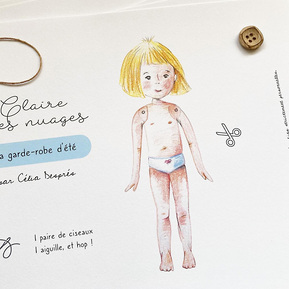 Claire
es nuages
a garde-robe d'été
par Célia Després
1 paire de ciseaux
1 aiguille, et hop !